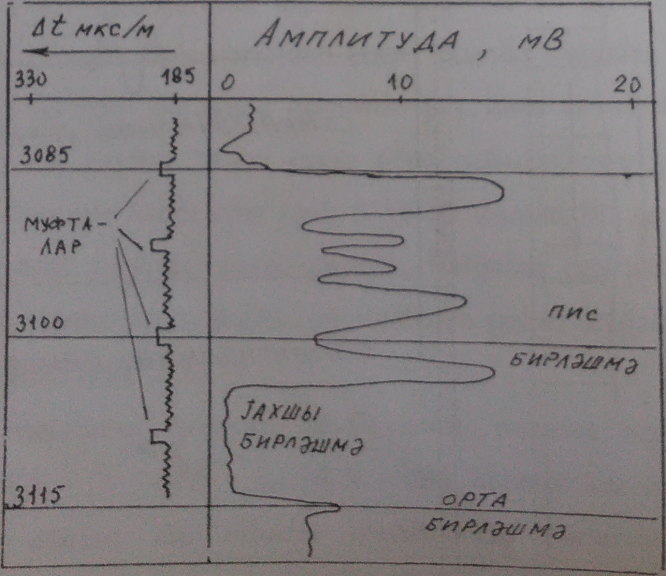 Δt мкс/м
Амплитуда, мВ
330 185 0 10 20
3085
МУФТА-
ЛАР
3100
ПИС
БИРЛӘШМӘ
ЈАХШЫ
БИРЛӘШМӘ
3115
ОРТА
БИРЛӘШМӘ